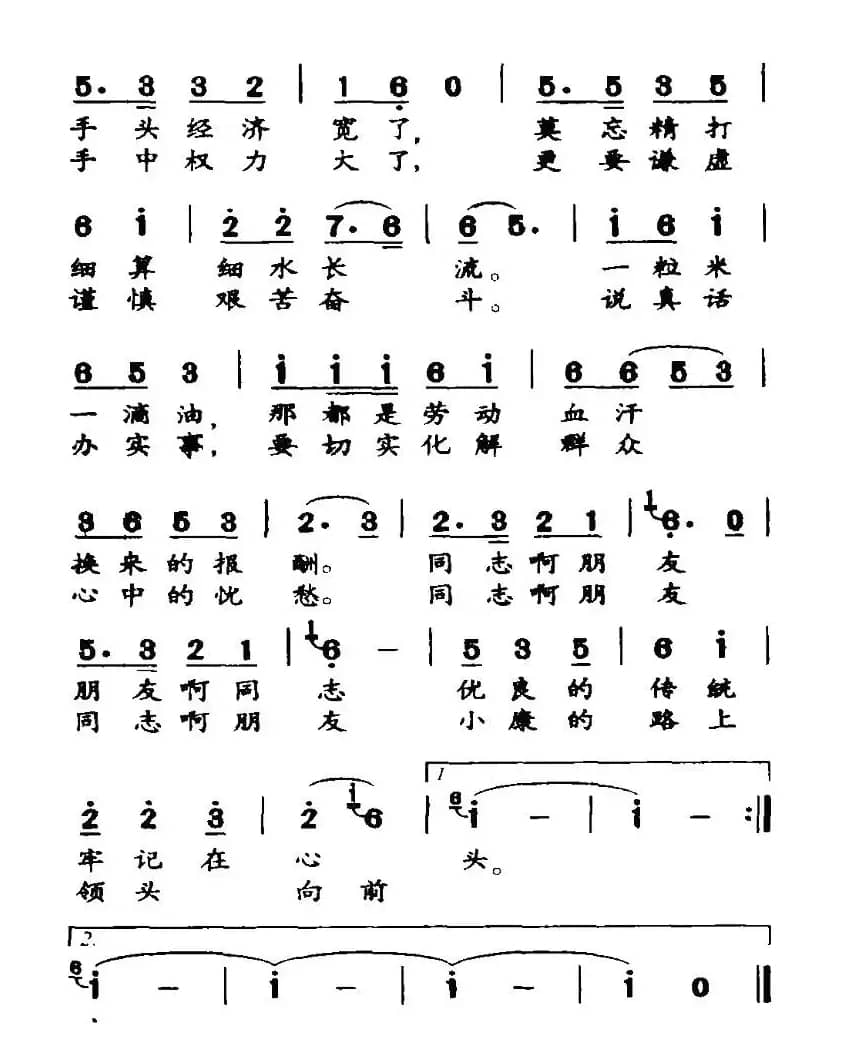 5. 3 3 2 | 1 6 0 | 5. 5 3 5 |
手头经济 宽了, 莫忘精打
手中权力 大了, 更要谦虚
6 i | 2 2 7. 6 | 6 5. | i 6 i |
细算 细水长 流。 一粒米
谨慎 艰苦奋 斗。 说真话
6 5 3 | i i i 6 i | 6 6 5 3 |
一滴油, 那都是劳动 血汗
办实事, 要切实化解 群众
3 6 5 3 | 2. 3 | 2. 3 2 1 | 1 6. 0 |
换来的报 酬。 同志啊朋 友
心中的忧 愁。 同志啊朋 友
5. 3 2 1 | 1 6 – | 5 3 5 | 6 i |
朋友啊同 志 优良的 传统
同志啊朋 友 小康的 路上
1.
2 2 3 | 2 i 6 | 6 i – | i – :||
牢记在 心 头。
领头 向前
2.
6 i – | i – | i – | i 0 ||